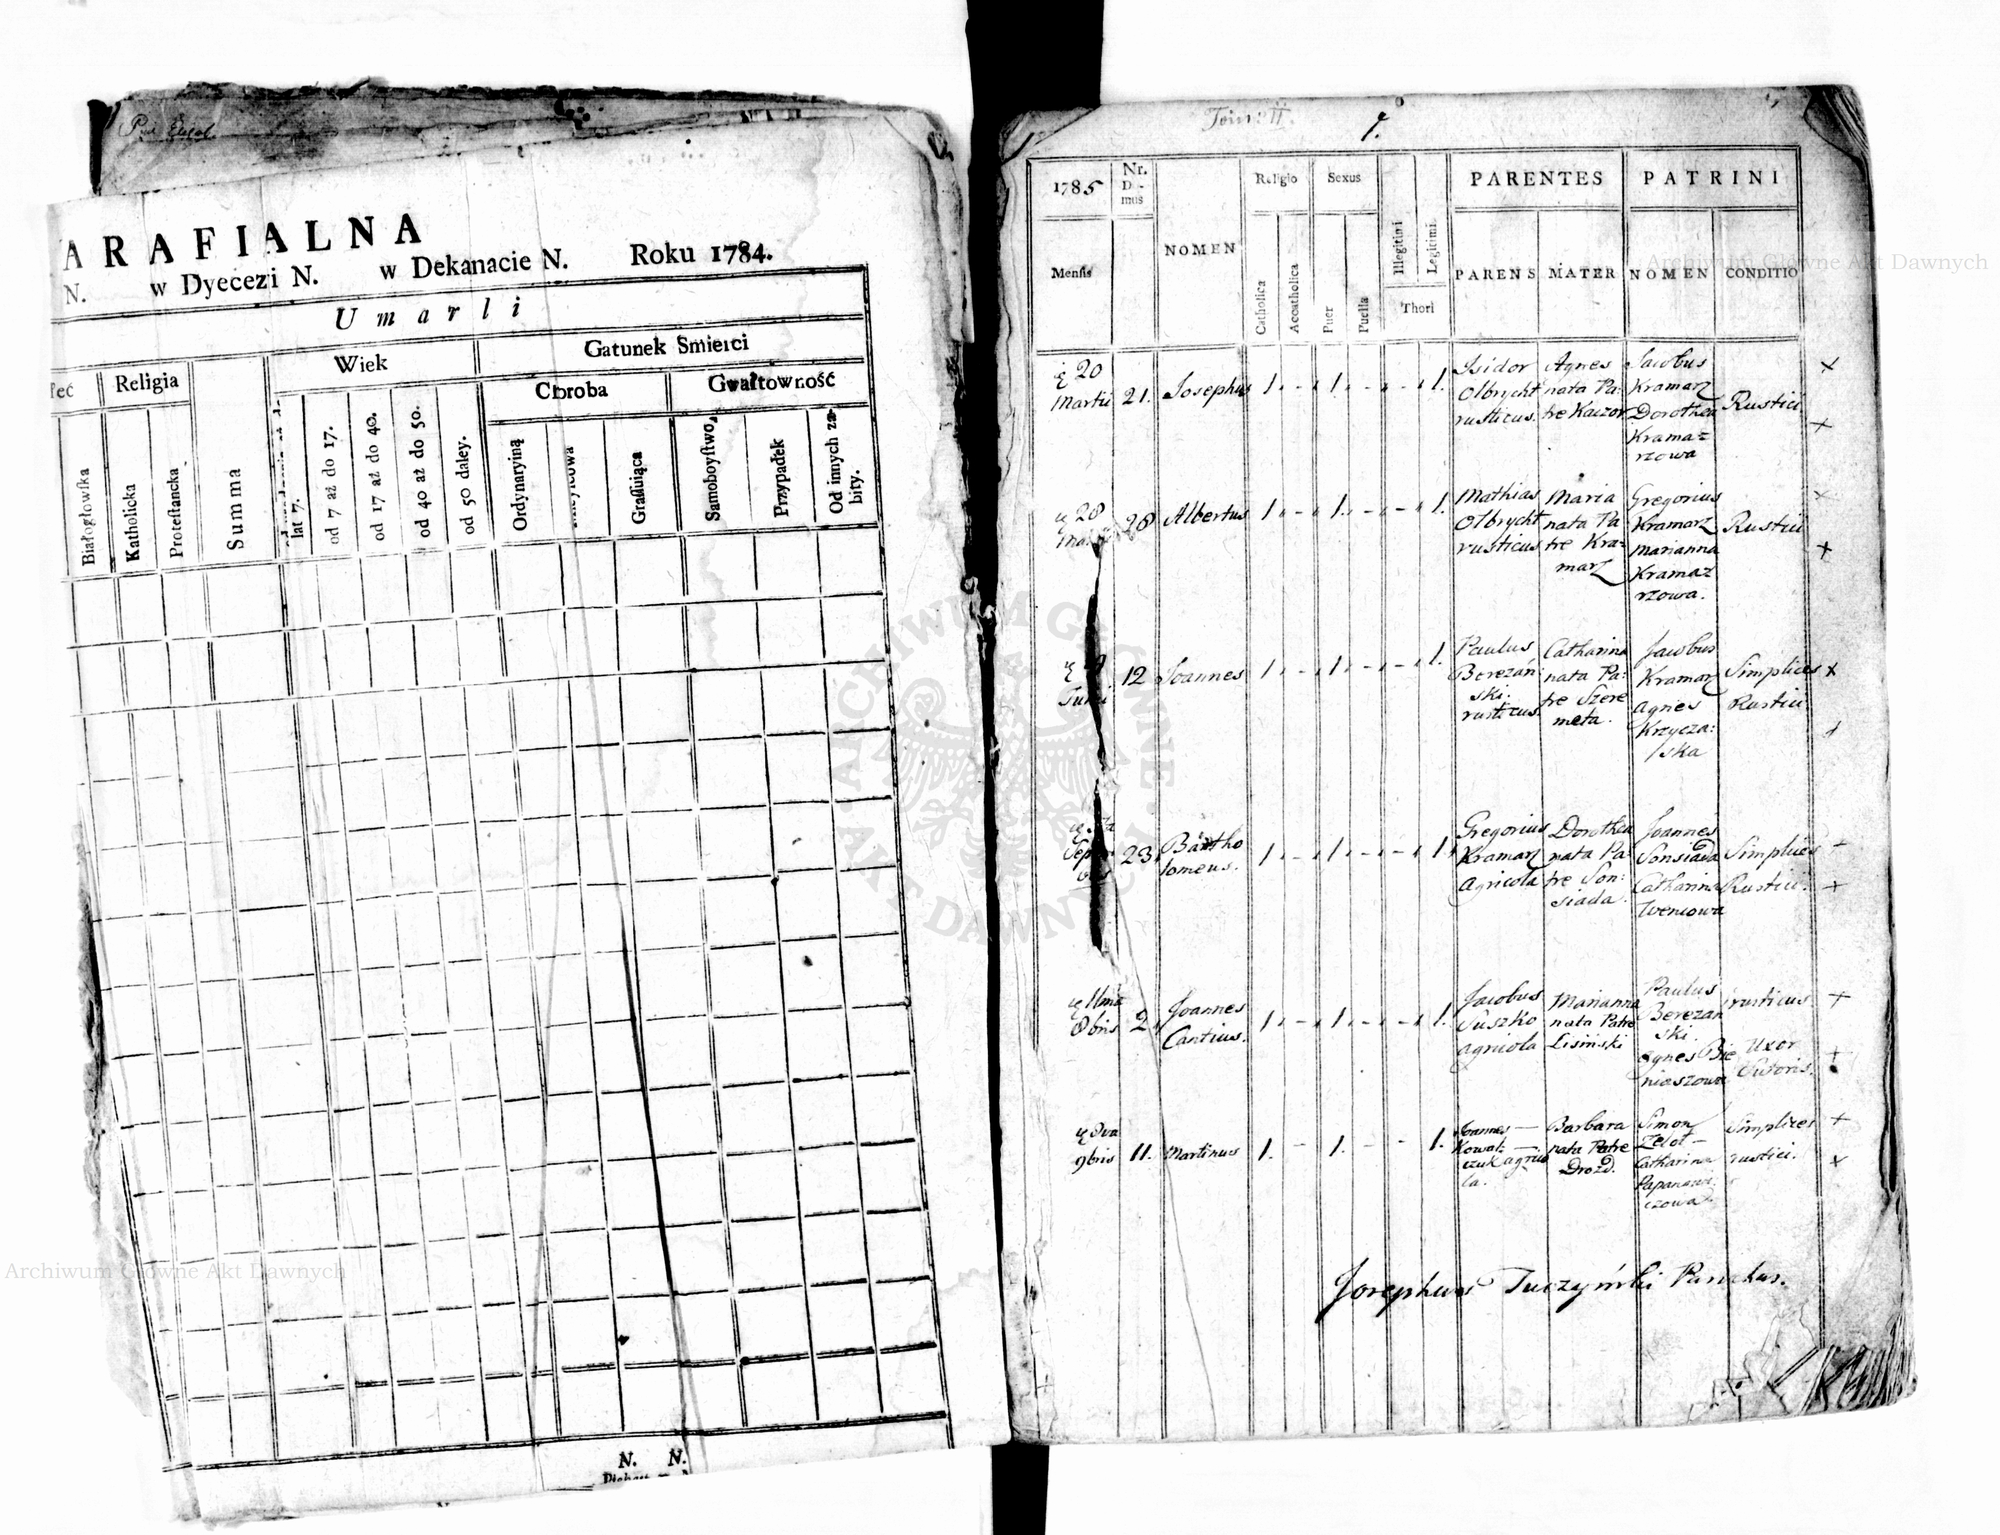 ARAFIALNA
N. w Dyecezi N. w Dekanacie N. Roku 1784.
Umarli
Wiek
Gatunek Smierci
Religia
Choroba
Gwałtowność
Białogłowſka
Katholicka
Proteſtancka
Summa
lat 7.
od 7 aż do 17.
od 17 aż do 40.
od 40 aż do 50.
od 50 daley.
Ordynaryiną
Graſuiąca
Samoboyſtwo
Przypadek
Od innych za-
bity.
N. N.
Tom: II.
1785
Nr.
D-
mus
Menſis
NOMEN
Religio
Catholica
Accatholica
Sexus
Puer
Puella
Illegitimi
Legitimi.
Thori
PARENTES
PARENS
MATER
PATRINI
NOMEN
CONDITIO
20
Martii
21.
Josephus
1.
1.
1.
Isidor
Olbrycht
rusticus.
Agnes
nata Pa:
tre Kaczor
Jacobus
Kramarz
Dorothea
Kramaz
rzowa
Rustici
28
28
Albertus
1.
1.
1.
Mathias
Olbrycht
rusticus
Maria
nata Pa
tre Kra:
marz
Gregorius
Kramarz
Marianna
Kramaz
rzowa.
Rustici
12
Joannes
1.
1.
1.
Paulus
Berezań
ski.
rusticus.
Catharina
nata Pa:
tre Szere
meta.
Jacobus
Kramarz
Agnes
Krzycza:
ska
Simplices
Rustici
23
Bartho
lomeus.
1.
1.
1.
Gregorius
Kramarz
Agricola
Dorothea
nata Pa
tre Son:
siada.
Joannes
Sonsiada
Catharina
Simplices
Rustici.
11ma
8bris
2.
Joannes
Cantius.
1.
1.
1.
Jacobus
Suszko
agricola
Marianna
nata Patre
Lisinski
Paulus
Berezan
ski.
Agnes Bie
niaszowa
rusticus
Uxor
Sutoris.
9bris
11.
Martinus
1.
1.
1.
Joannes
Kowal:
czuk agrico
la.
Barbara
nata Patre
Drozd.
Simon
Catharina
Simplices
rustici.
Josephus Tuczyński Parochus.
Archiwum Główne Akt Dawnych
Archiwum Główne Akt Dawnych
ARCHIWUM GŁÓWNE AKT DAWNYCH